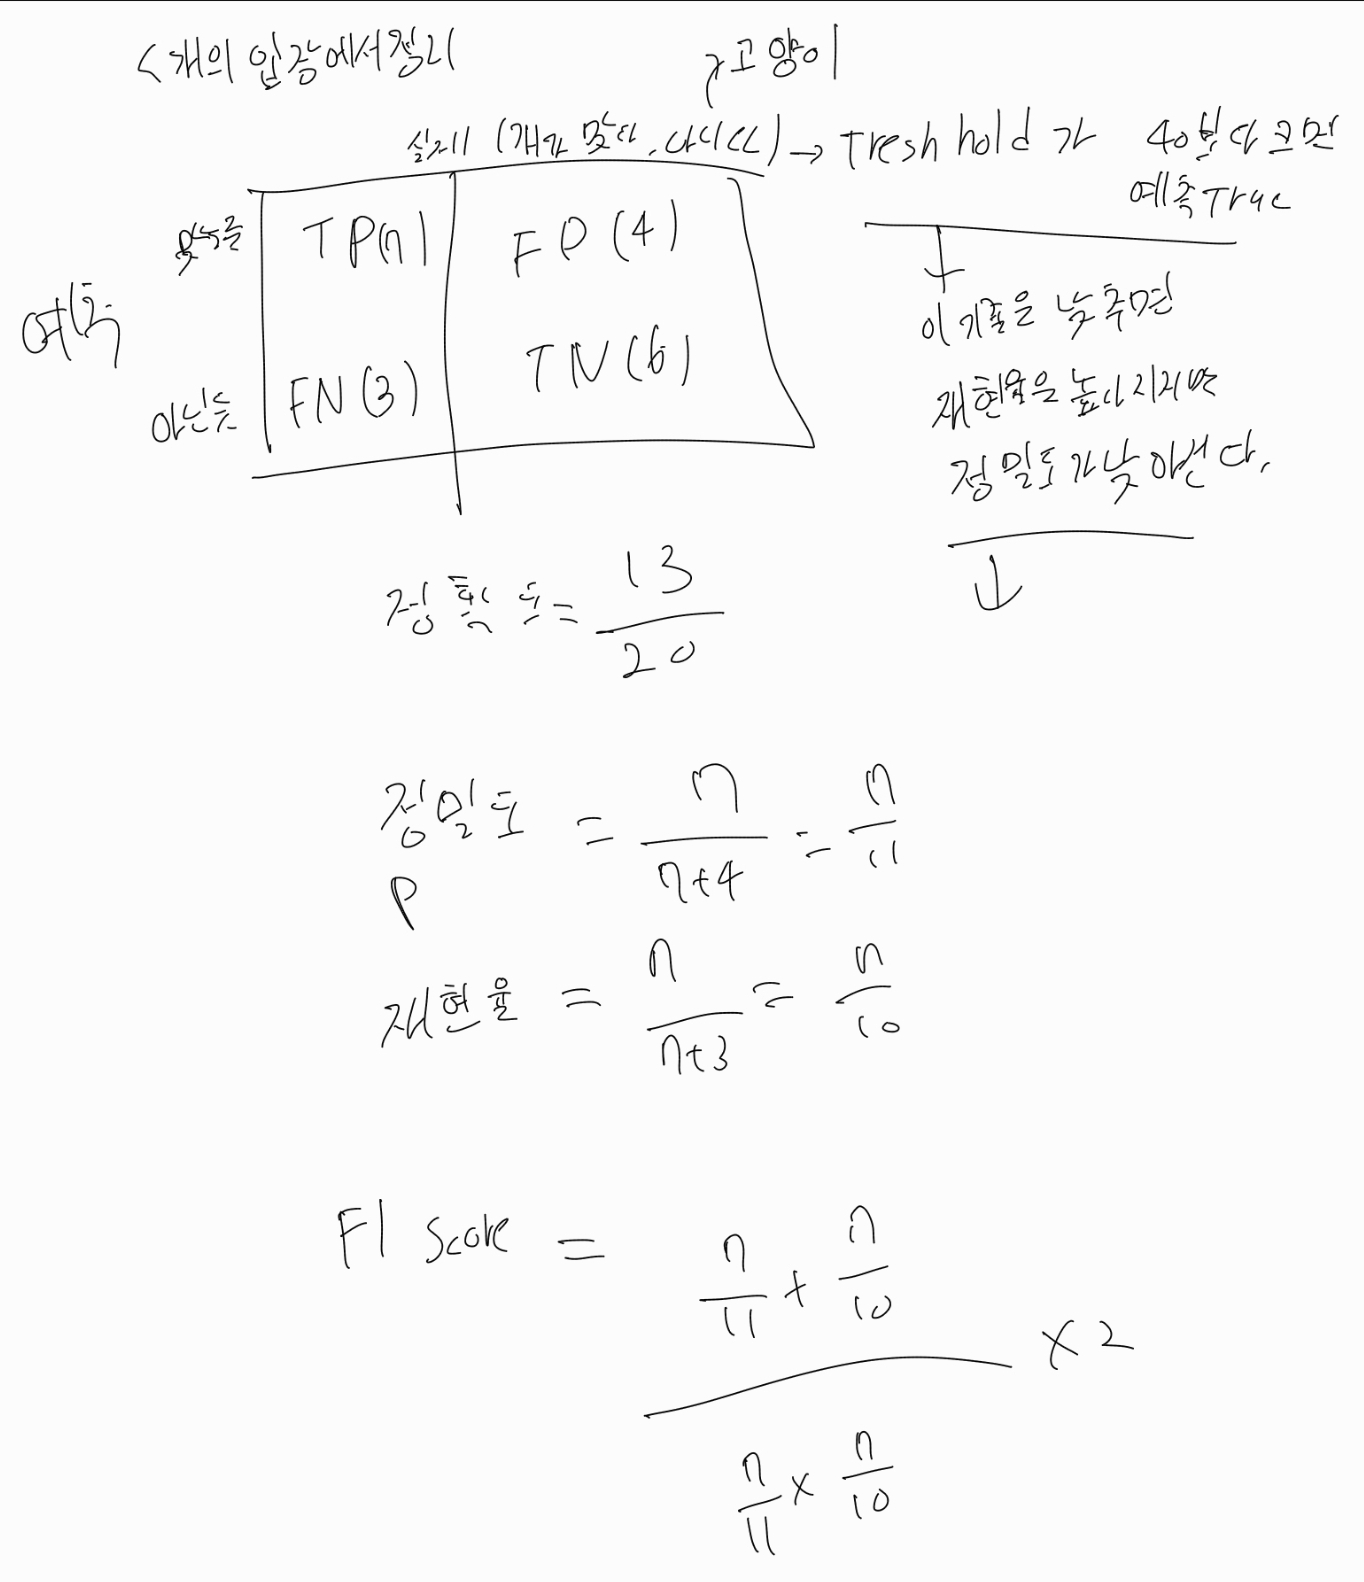 <개의 입장에서정리
고양이
실제 (개가 맞다, 아니다) → Treshhold 가 40보다 크면
예측True
예측
맞는
TP(7)
FP(4)
아닌
FN(3)
TN(6)
↓
이 기준을 낮추면
재현율은 높아지지만
정밀도가 낮아진다.
↓
정확도 = 13/20
정밀도 = 7/7+4 = 7/11
P
재현율 = 7/7+3 = 7/10
F1 Score = 7/11 + 7/10 / 7/11 × 7/10 × 2